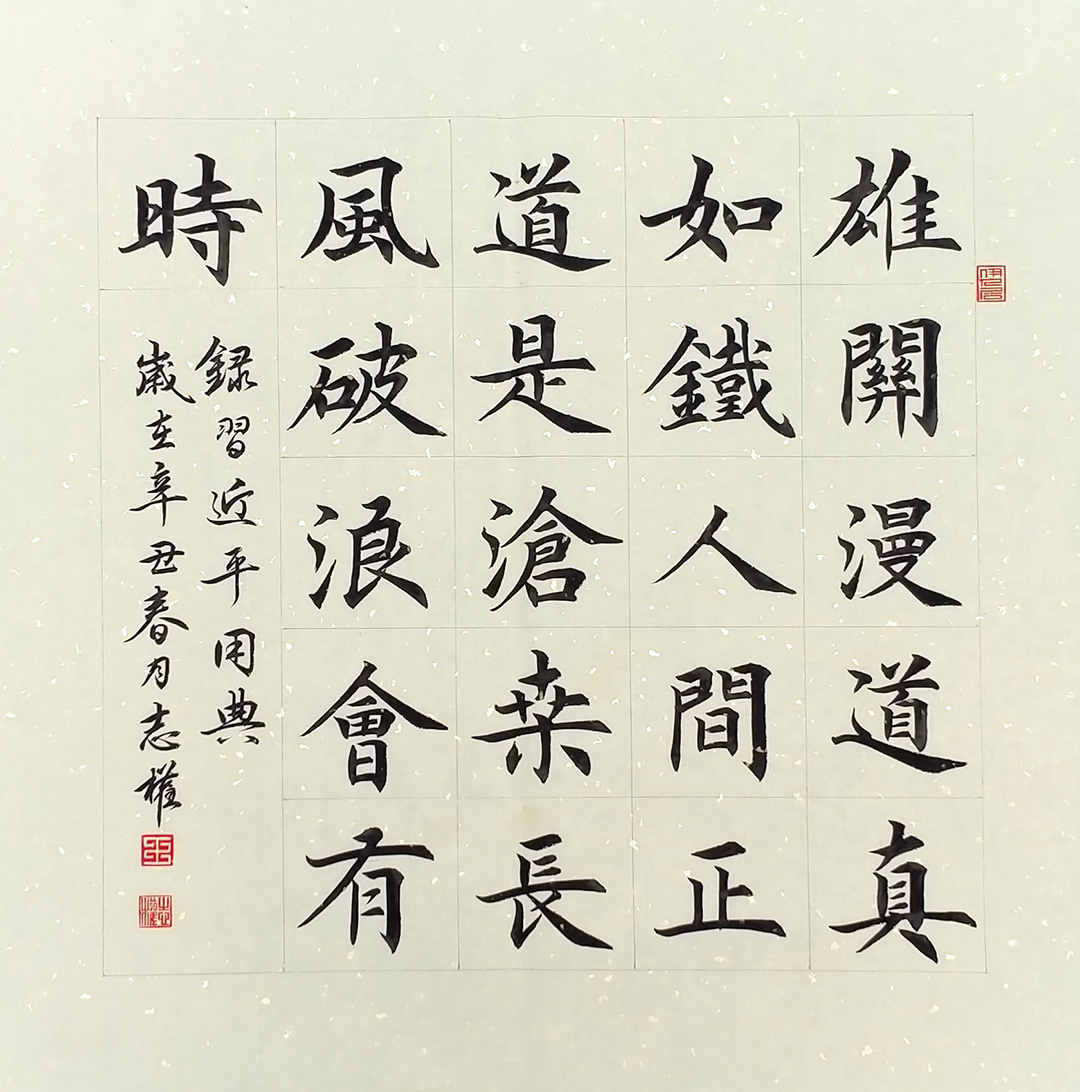 雄關漫道真
如鐵人間正
道是滄桒長
風破浪會有
時
録習近平用典
歲在辛丑春月志權